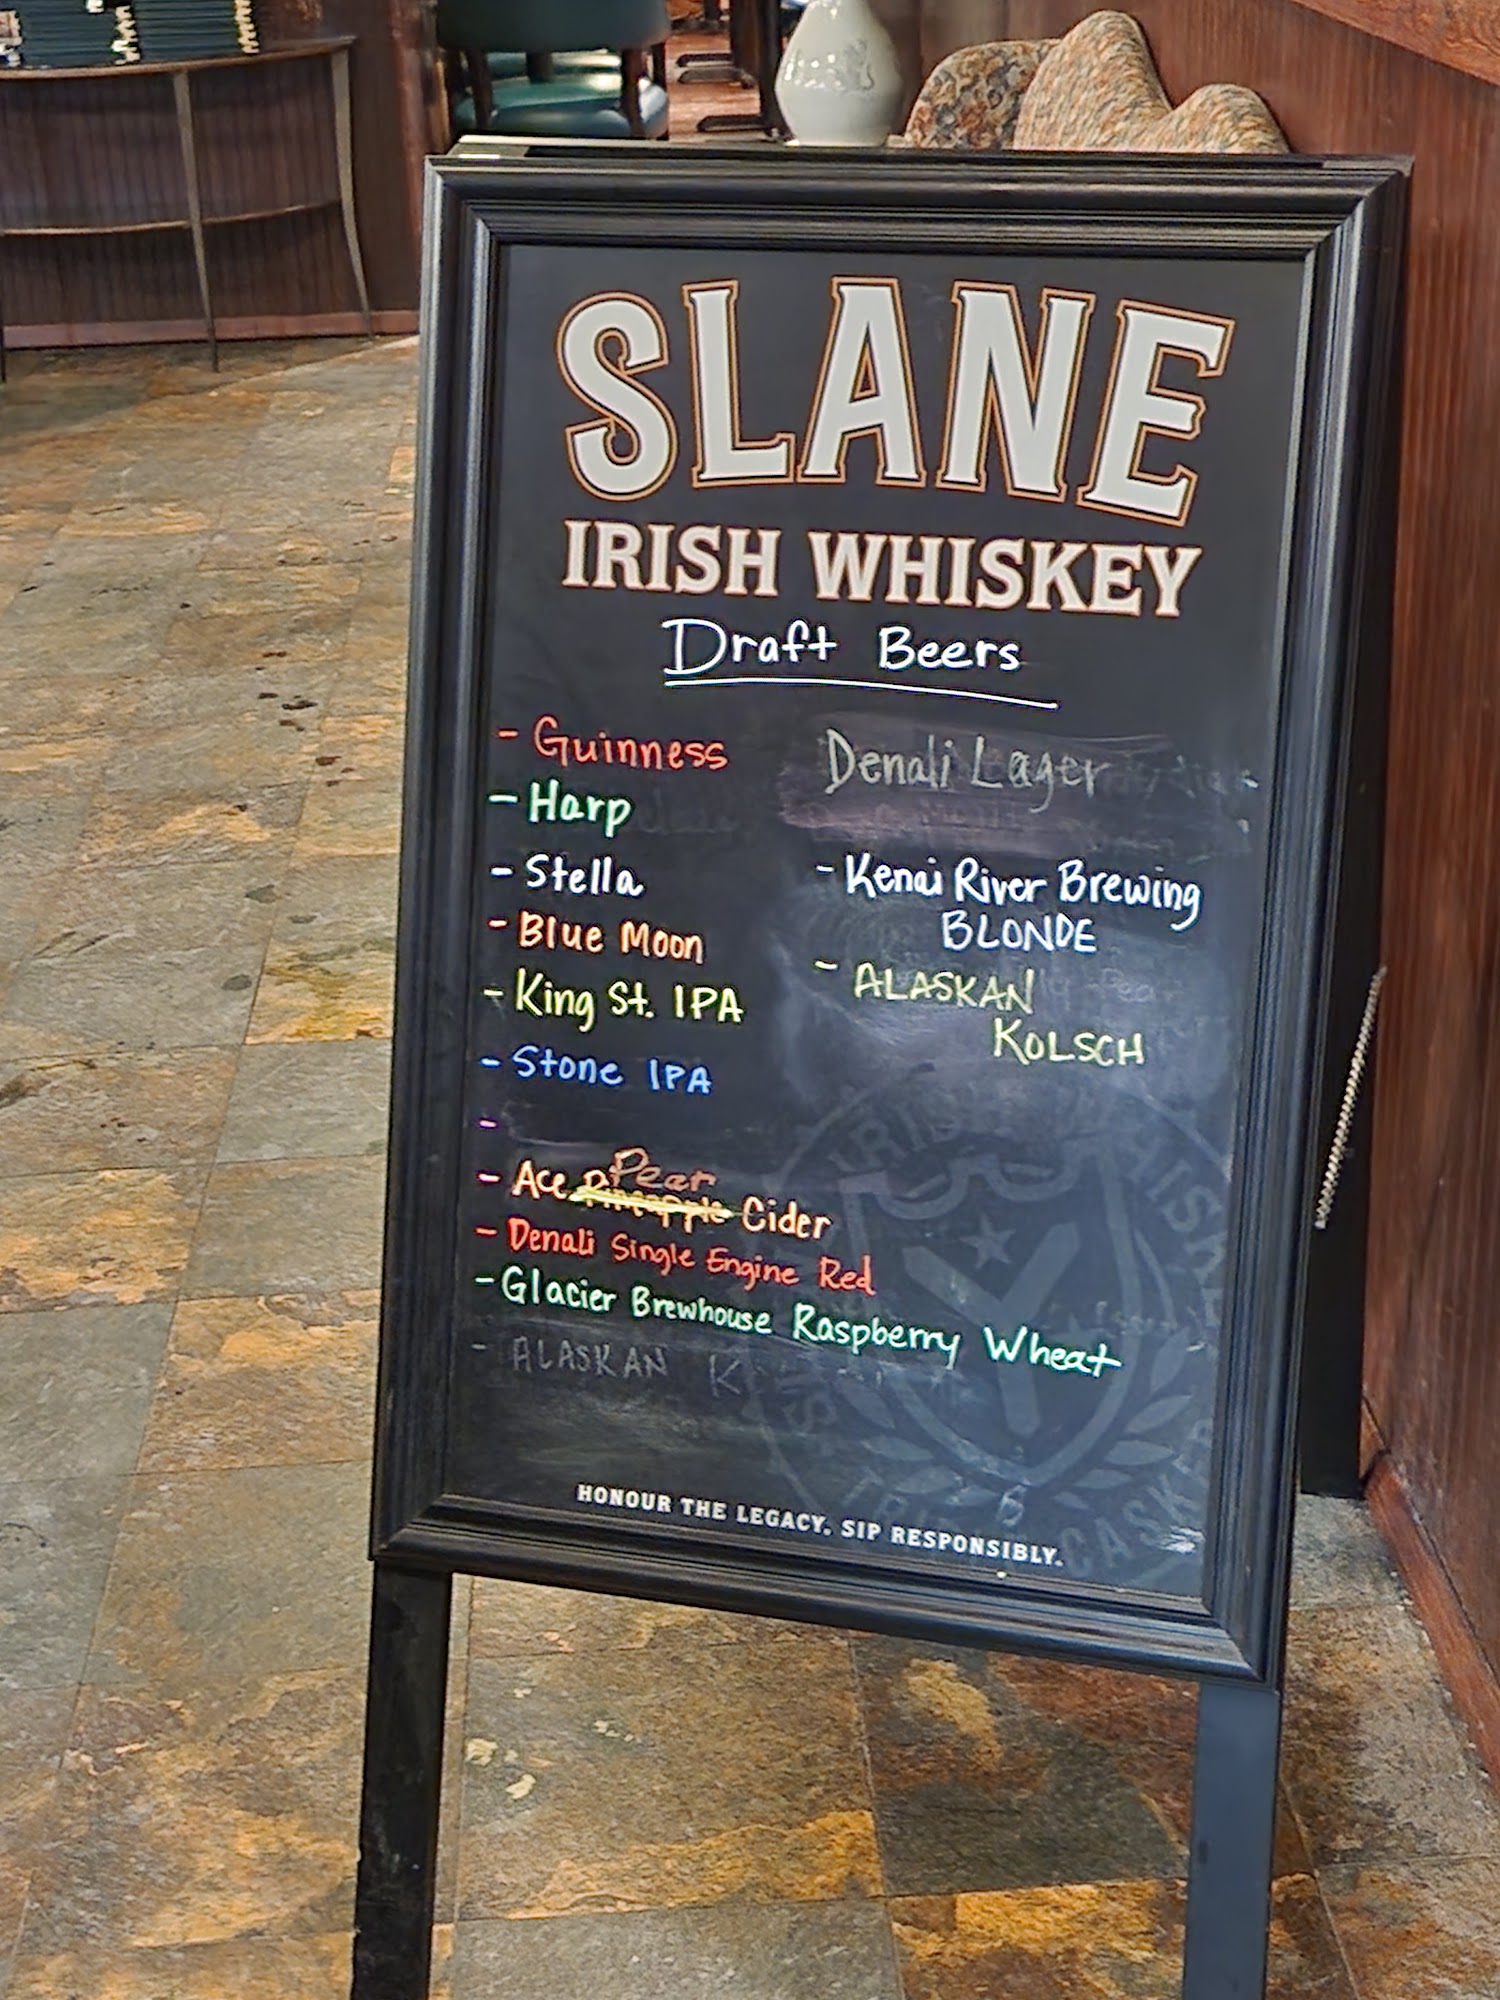 SLANE
IRISH WHISKEY
Draft Beers
- Guinness
- Harp
- Stella
- Blue Moon
- King St. IPA
- Stone IPA
-
Pear
- Ace Pineapple Cider
- Denali Single Engine Red
- Glacier Brewhouse Raspberry Wheat
- ALASKAN K
Denali Lager
- Kenai River Brewing
BLONDE
- ALASKAN
KOLSCH
HONOUR THE LEGACY. SIP RESPONSIBLY.